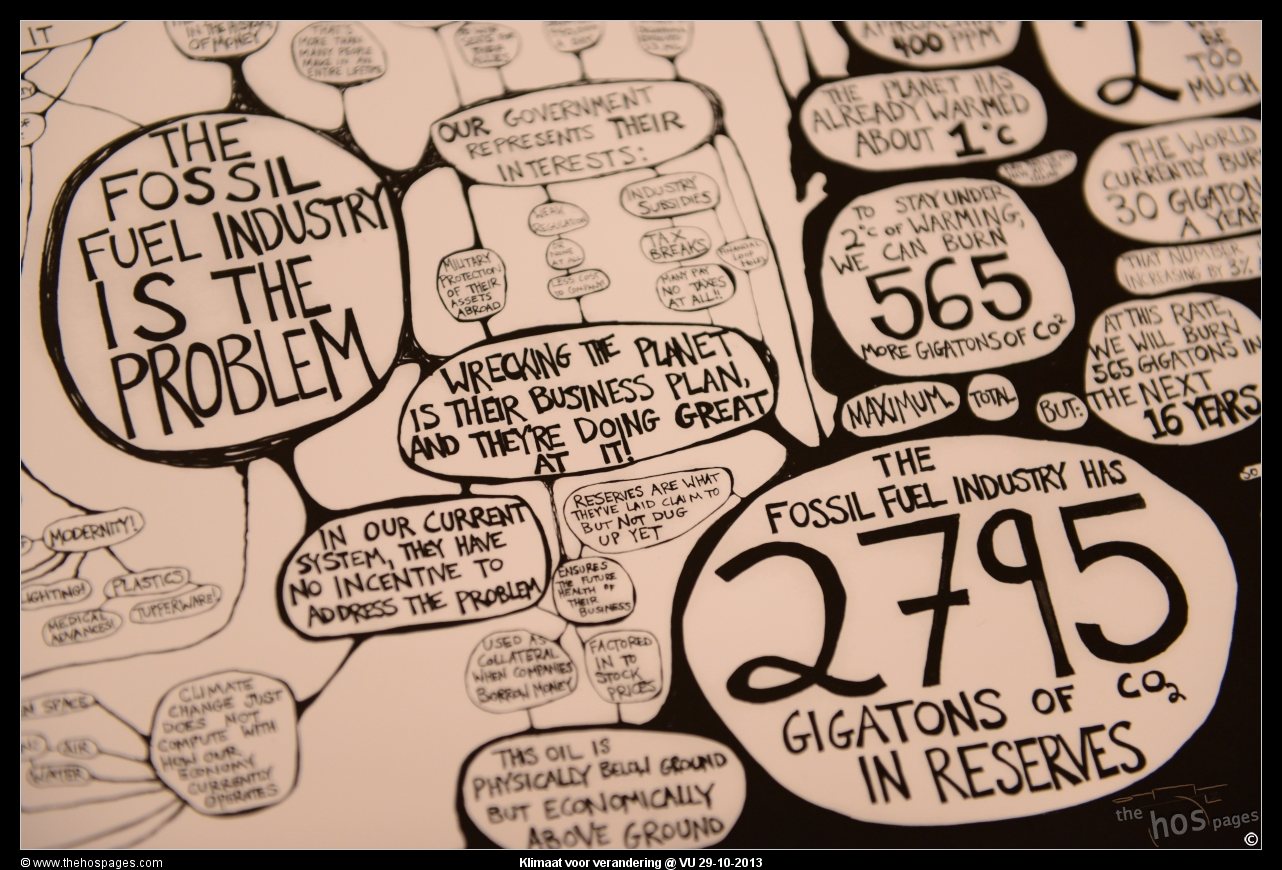 IT
OF MONEY
THAT'S
MORE THAN
MANY PEOPLE
MAKE IN AN
ENTIRE LIFETIME
THE
FOSSIL
FUEL INDUSTRY
IS THE
PROBLEM
OUR GOVERNMENT
REPRESENTS THEIR
INTERESTS:
MILITARY
PROTECTION
OF THEIR
ASSETS
ABROAD
WEAK
REGULATION
OR
NONE
AT ALL
LESS COST
TO COMPANIES
INDUSTRY
SUBSIDIES
TAX
BREAKS
MANY PAY
NO TAXES
AT ALL!!
FINANCIAL
LOOP
HOLES
WRECKING THE PLANET
IS THEIR BUSINESS PLAN,
AND THEY'RE DOING GREAT
AT IT!
IN OUR CURRENT
SYSTEM, THEY HAVE
NO INCENTIVE TO
ADDRESS THE PROBLEM
RESERVES ARE WHAT
THEY'VE LAID CLAIM TO
BUT NOT DUG
UP YET
ENSURES
THE FUTURE
HEALTH OF
THEIR
BUSINESS
USED AS
COLLATERAL
WHEN COMPANIES
BORROW MONEY
FACTORED
IN TO
STOCK
PRICES
THIS OIL IS
PHYSICALLY BELOW GROUND
BUT ECONOMICALLY
ABOVE GROUND
MODERNITY!
LIGHTING!
PLASTICS
MEDICAL
ADVANCES!
TUPPERWARE!
CLIMATE
CHANGE JUST
DOES NOT
COMPUTE WITH
HOW OUR
ECONOMY
CURRENTLY
OPERATES
SPACE
AIR
WATER
400 PPM
THE PLANET HAS
ALREADY WARMED
ABOUT 1°C
2
BE
TOO
MUCH
TO STAY UNDER
2°C OF WARMING,
WE CAN BURN
565
MORE GIGATONS OF CO2
MAXIMUM.
TOTAL.
BUT:
THE WORLD
CURRENTLY BURNS
30 GIGATONS
A YEAR
THAT NUMBER IS
INCREASING BY 3%
AT THIS RATE,
WE WILL BURN
565 GIGATONS IN
THE NEXT
16 YEARS
SO
THE
FOSSIL FUEL INDUSTRY HAS
2795
GIGATONS OF CO2
IN RESERVES
the hos pages
©
© www.thehospages.com
Klimaat voor verandering @ VU 29-10-2013